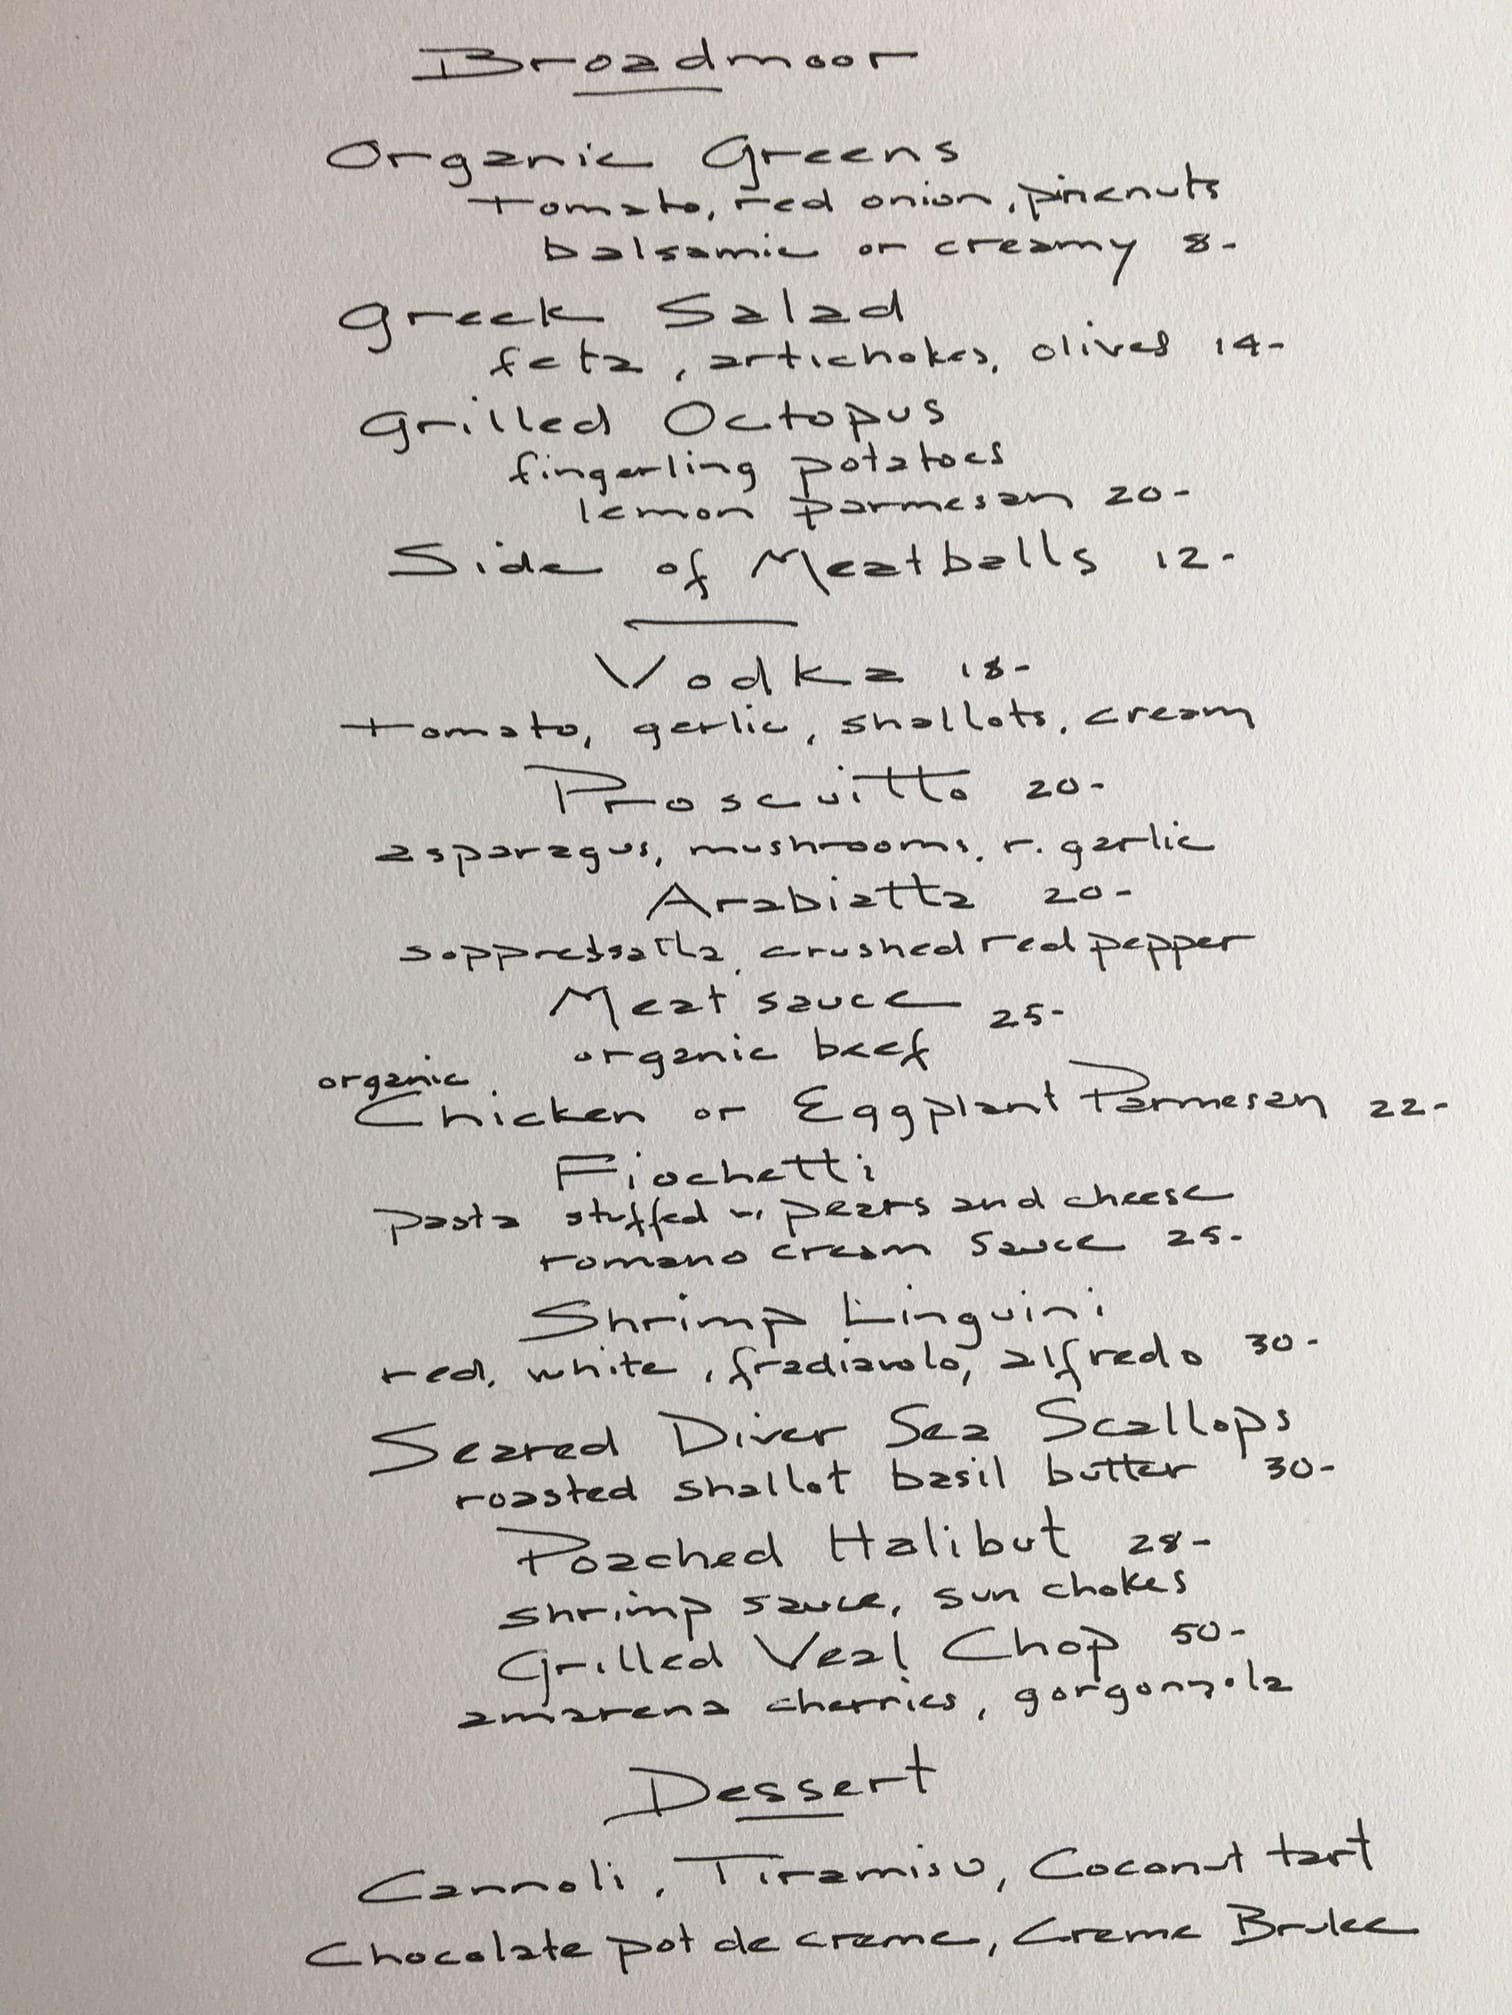 Broadmoor
Organic Greens
tomato, red onion, pinenuts
balsamic or creamy 8-
Greek Salad
feta, artichokes, olives 14-
Grilled Octopus
fingerling potatoes
lemon parmesan 20-
Side of Meatballs 12-
Vodka 18-
tomato, garlic, shallots, cream
Proscuitto 20-
asparagus, mushrooms, r. garlic
Arabiatta 20-
soppretsatta, crushed red pepper
Meat sauce 25-
organic beef
organic
Chicken or Eggplant Parmesan 22-
Fiochetti
pasta stuffed w. pears and cheese
romano cream sauce 25-
Shrimp Linguini
red, white, fradiavolo, alfredo 30-
Seared Diver Sea Scallops
roasted shallot basil butter 30-
Poached Halibut 28-
shrimp sauce, sun chokes
Grilled Veal Chop 50-
amarena cherries, gorgonzola
Dessert
Cannoli, Tiramisu, Coconut tart
Chocolate pot de creme, Creme Brulee